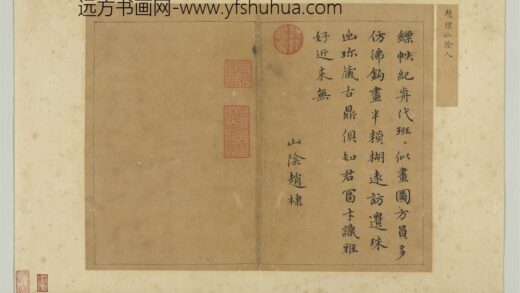 远方书画网-www.yfshuhua.com
趙棣山陰人
縹帙紀代班、似畫圖方員多
仿佛鈎畫半糢糊遠訪遺珠
出珍藏古鼎俱知君富才識雅
好近来無
山陰趙棣